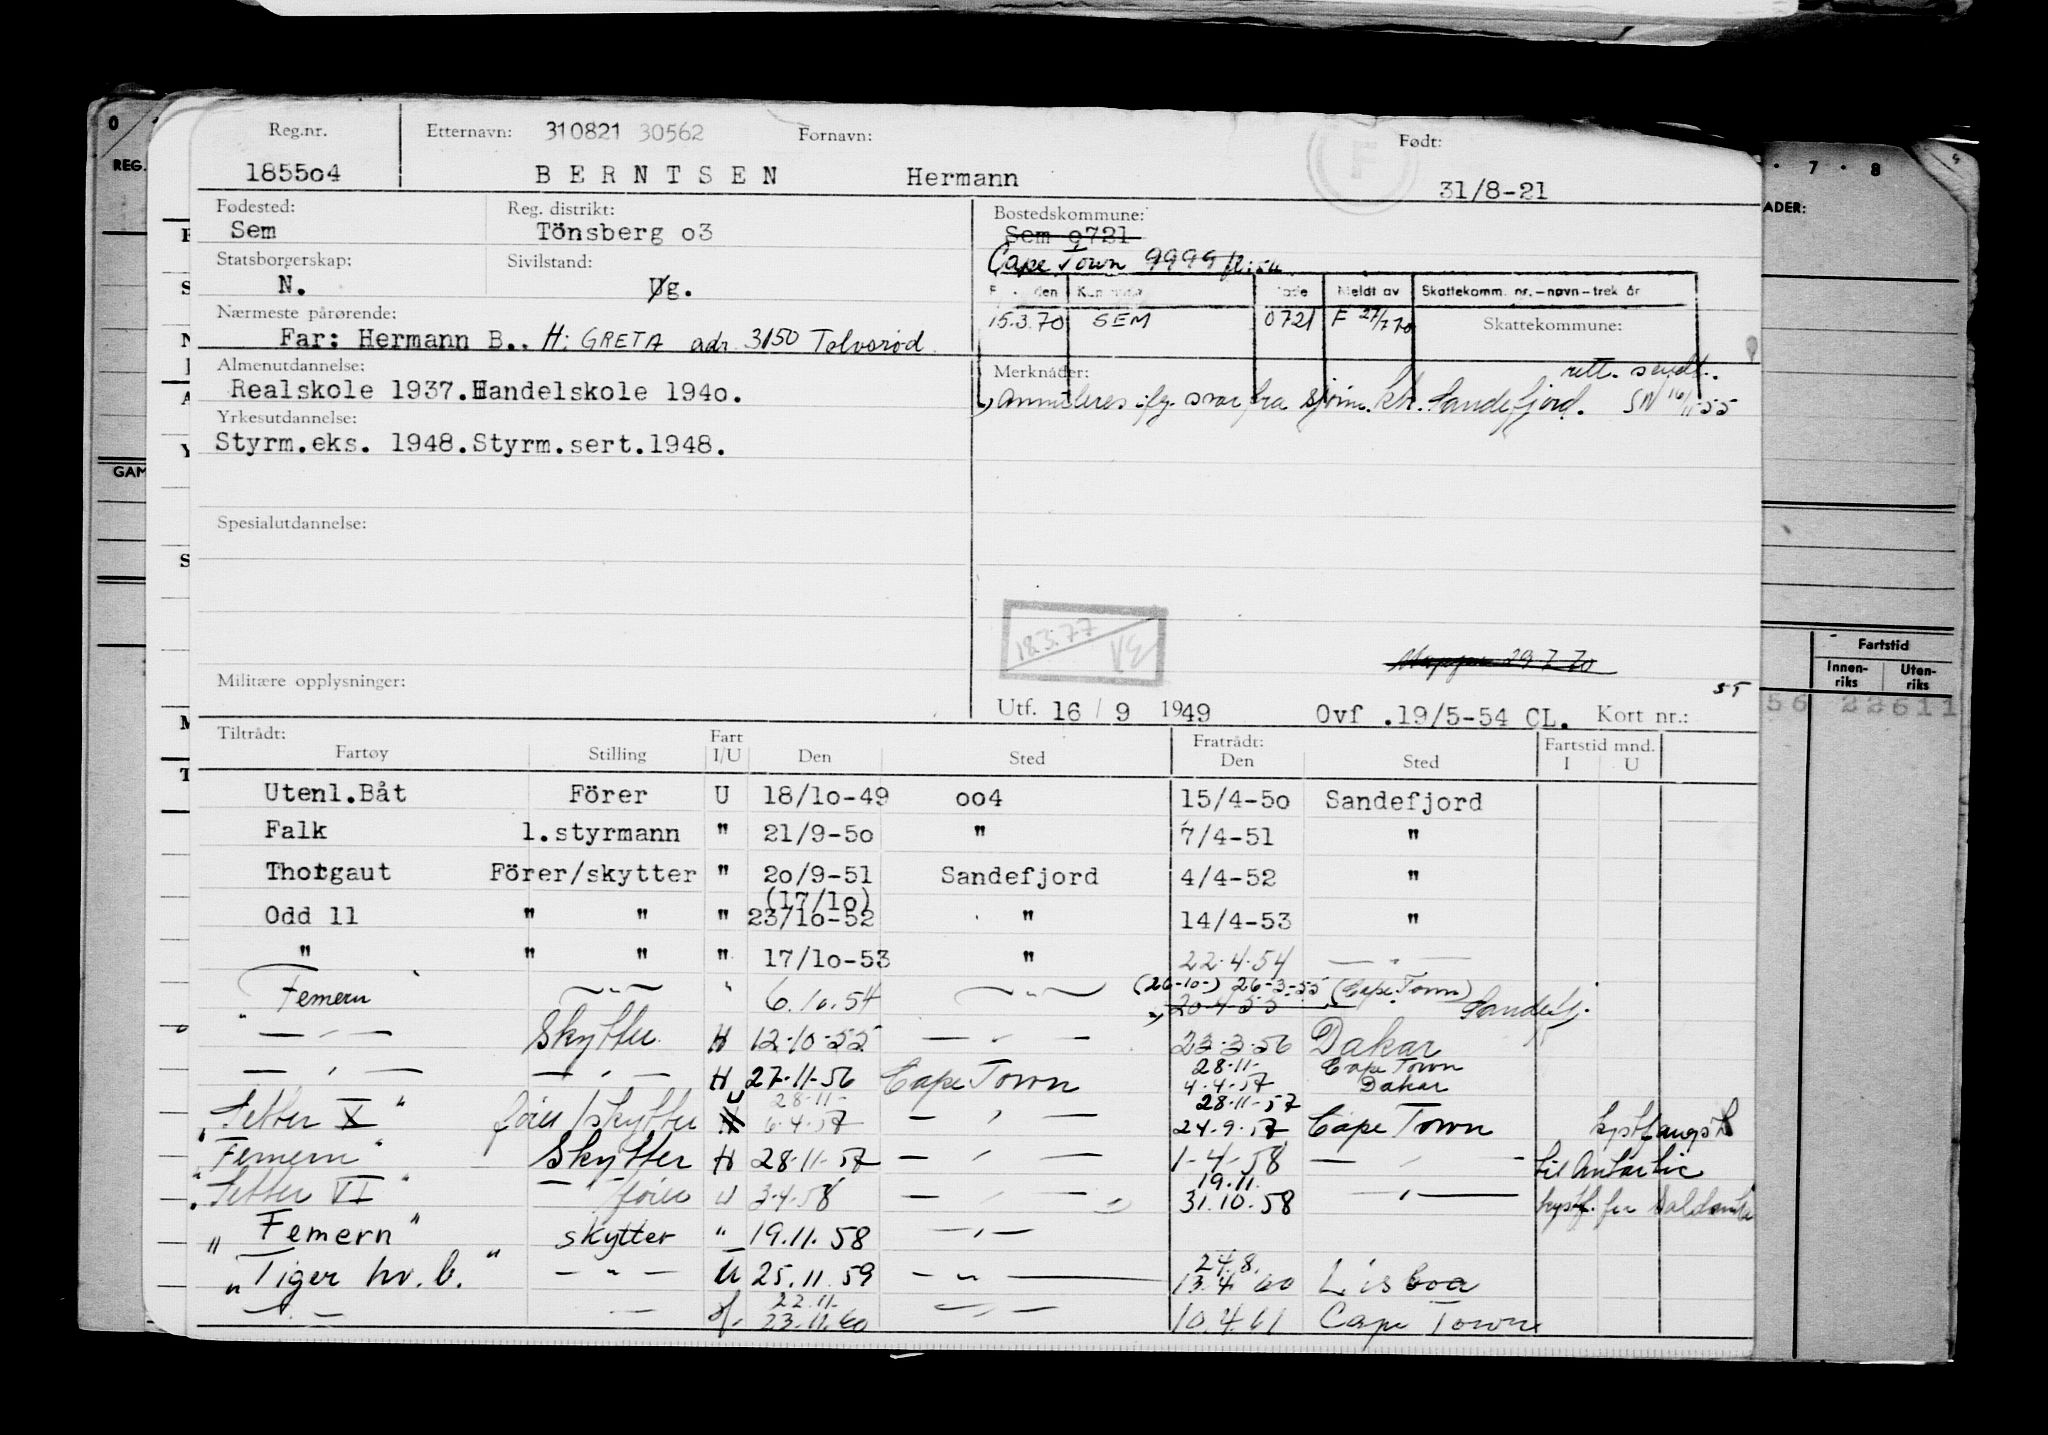 Reg.nr. Etternavn: 310821 30562 Fornavn: Født:
185504 BERNTSEN Hermann 31/8-21
Fødested: Reg. distrikt: Bostedskommune:
Sem Tönsberg o3 Sem 0721
Statsborgerskap: Sivilstand: Cape Town 9999
N. Ug.
Meldt av Skattekomm. nr.-navn-trek år
Nærmeste pårørende: 15.3.70 SEM 0721 F 27/7 70 Skattekommune:
Far: Hermann B.. H: GRETA adr. 3150 Tolvsrød
Almenutdannelse: Merknader: rett. sendt.
Realskole 1937. Handelskole 1940. annulleres ifg. svar fra sjøm. ktr. Sandefjord. SN 16/11-55
Yrkesutdannelse:
Styrm.eks. 1948.Styrm.sert.1948.
Spesialutdannelse:
18.3.77
Mappen 29.7.70
Militære opplysninger: ST
Utf. 16 / 9 1949 Ovf .19/5-54 CL. Kort nr.:
Tiltrådt: Fart Fratrådt: Fartstid mnd.
Fartøy Stilling I/U Den Sted Den Sted I U
Utenl.Båt Förer U 18/10-49 oo4 15/4-50 Sandefjord
Falk 1.styrmann " 21/9-50 " 7/4-51 "
Thorgaut Förer/skytter " 20/9-51 Sandefjord 4/4-52 "
(17/10)
Odd 11 " " " 23/10-52 " 14/4-53 "
" " " " 17/10-53 " 22.4.54 — " —
(26-10-) 26-3-55 (Cape Town)
Femern — " — " 6.10.54 — " — 20.4.55 Sandefj.
— " — Skytter H 12-10-55 — " — 23-3-56 Dakar
28-11- Cape Town
— " — — " — H 27-11-56 Cape Town 4-4-57 Dakar
U 28-11- 28-11-57
"Setter X" fører/skytter H 6.4.57 — " — 24.9.57 Cape Town kystfangst
"Femern" Skytter H 28-11-57 — " — 1-4-58 — " — til Antartic
19.11.
"Setter VI" — fører U 3.4.58 — " — 31.10.58 — " — kystf. fra Saldanha
"Femern" skytter " 19.11.58 — " —
24.8.
"Tiger hv.b." — " — U 25.11.59 — " — 13.4.60 Lisboa
22.11.
— " — — 23.11.60 — " — 10.4.61 Cape Town
0
REG.
GAM
7 . 8
ADER:
Fartstid
Innen-
riks
Uten-
riks
56 22611